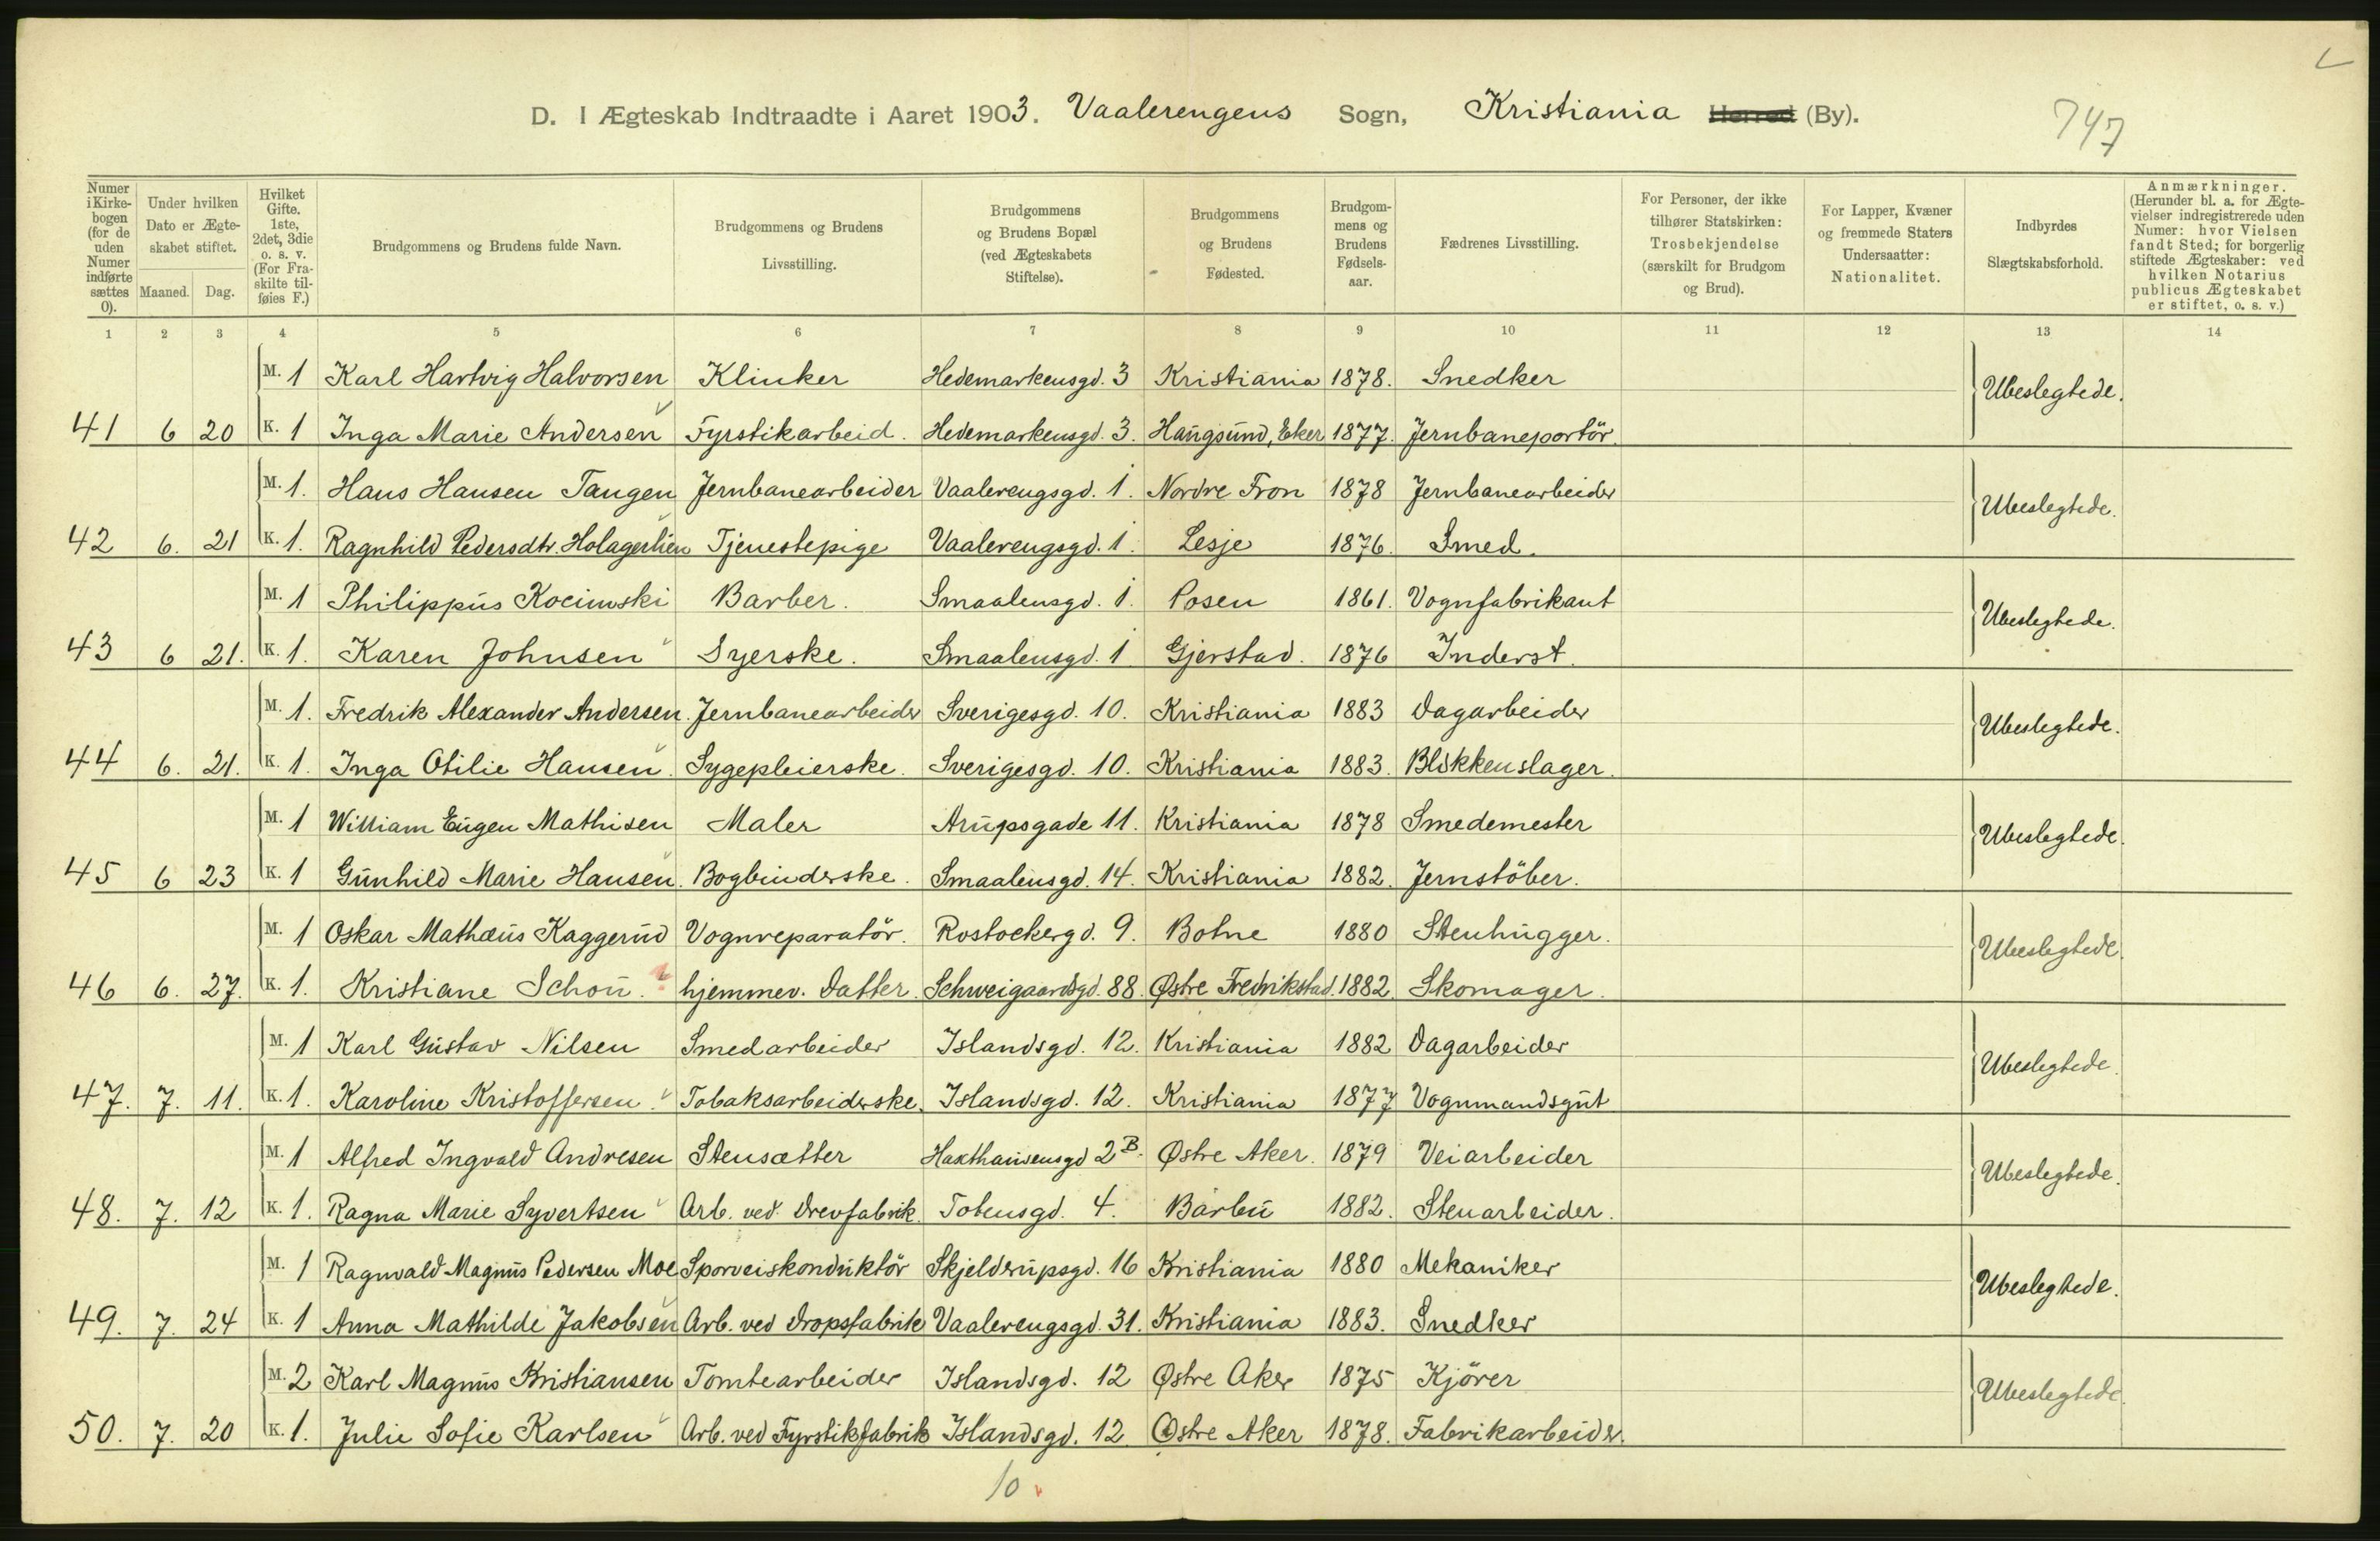 D. I Ægteskab Indtraadte i Aaret 1903. Vaalerengens Sogn, Kristiania Herred (By).
747
Numer i Kirkebogen (for de uden Numer indførte sættes 0).
Under hvilken Dato er Ægteskabet stiftet.
Maaned. Dag.
Hvilket Gifte. 1ste, 2det, 3die o. s. v. (For Fraskilte tilføies F.)
Brudgommens og Brudens fulde Navn.
Brudgommens og Brudens Livsstilling.
Brudgommens og Brudens Bopæl (ved Ægteskabets Stiftelse).
Brudgommens og Brudens Fødested.
Brudgommens og Brudens Fødselsaar.
Fædrenes Livsstilling.
For Personer, der ikke tilhører Statskirken: Trosbekjendelse (særskilt for Brudgom og Brud).
For Lapper, Kvæner og fremmede Staters Undersaatter: Nationalitet.
Indbyrdes Slægtskabsforhold.
Anmærkninger. (Herunder bl. a. for Ægtevielser indregistrerede uden Numer: hvor Vielsen fandt Sted; for borgerlig stiftede Ægteskaber: ved hvilken Notarius publicus Ægteskabet er stiftet, o. s. v.)
1 2 3 4 5 6 7 8 9 10 11 12 13 14
M. 1 Karl Hartvig Halvorsen Klinker Hedemarkensgd. 3 Kristiania 1878. Snedker Ubeslegtede.
41 6 20 K. 1 Inga Marie Andersen Fyrstikarbeid. Hedemarkensgd. 3. Haugsund, Eker 1877. Jernbaneportör.
M. 1. Hans Hansen Tangen Jernbanearbeider Vaalerengsgd. 1. Nordre Fron 1878 Jernbanearbeider Ubeslegtede.
42 6. 21 K. 1. Ragnhild Pedersdtr. Holagerlien Tjenestepige Vaalerengsgd. 1. Lesje 1876. Smed.
M. 1 Philippus Kociwski Barber. Smaalensgd. 1. Posen 1861. Vognfabrikant Ubeslegtede.
43 6 21. K. 1. Karen Johnsen Syerske. Smaalensgd. 1 Gjerstad. 1876 Inderst.
M. 1. Fredrik Alexander Andersen. Jernbanearbeider Sverigesgd. 10. Kristiania 1883 Dagarbeider Ubeslegtede.
44 6. 21. K. 1. Inga Otilie Hansen. Sygepleierske. Sverigesgd. 10. Kristiania 1883. Blikkenslager.
M. 1 William Eugen Mathisen Maler Arupsgade 11. Kristiania 1878 Smedemester Ubeslegtede.
45 6 23 K. 1 Gunhild Marie Hansen. Bogbinderske. Smaalensgd. 14. Kristiania 1882. Jernstöber.
M. 1 Oskar Mathæus Kaggerud Vognreparatör. Rostockergd. 9. Botne 1880 Stenhugger. Ubeslegtede.
46 6. 27. K. 1. Kristiane Schou. hjemmev. Datter. Schweigaardsgd. 88. Østre Fredrikstad. 1882. Skomager.
M. 1 Karl Gustav Nilsen Smedarbeider Islandsgd. 12. Kristiania 1882 Dagarbeider Ubeslegtede.
47. 7. 11. K. 1. Karoline Kristoffersen. Tobaksarbeiderske. Islandsgd. 12. Kristiania 1877 Vognmandsgut
M. 1 Alfred Ingvald Andresen Stensætter Haxthausensgd 2B. Østre Aker. 1879 Veiarbeider Ubeslegtede.
48. 7. 12 K. 1. Ragna Marie Syvertsen Arb. ved Drevfabrik. Totensgd. 4. Barbu 1882. Stenarbeider.
M. 1 Ragnvald Magnus Pedersen Moe Sporveiskonduktör Skjelderupsgd. 16 Kristiania 1880 Mekaniker Ubeslegtede.
49. 7. 24 K. 1 Anna Mathilde Jakobsen Arb. ved Dropsfabrik Vaalerengsgd. 31. Kristiania 1883. Snedker
M. 2 Karl Magnus Kristiansen Tomtearbeider Islandsgd. 12 Østre Aker 1875 Kjörer Ubeslegtede.
50. 7. 20 K. 1. Julie Sofie Karlsen Arb. ved Fyrstikfabrik Islandsgd. 12. Østre Aker 1878. Fabrikarbeider.
10